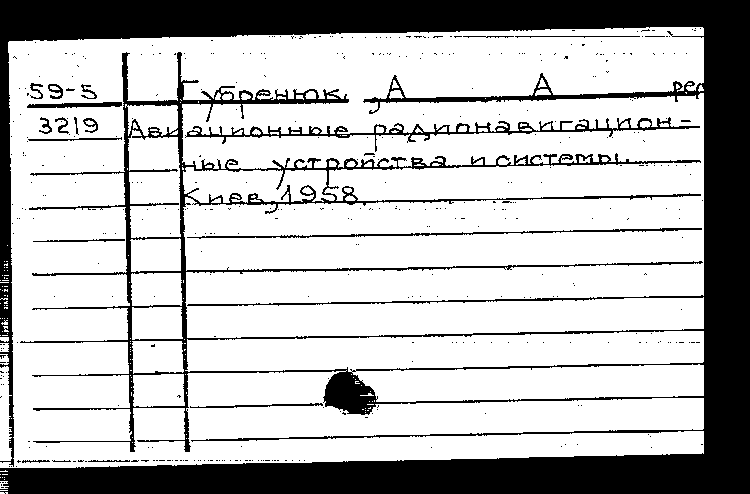 59-5 Губренюк, А А ред
3219 Авиационные радионавигацион-
ные устройства и системы.
Киев, 1958.